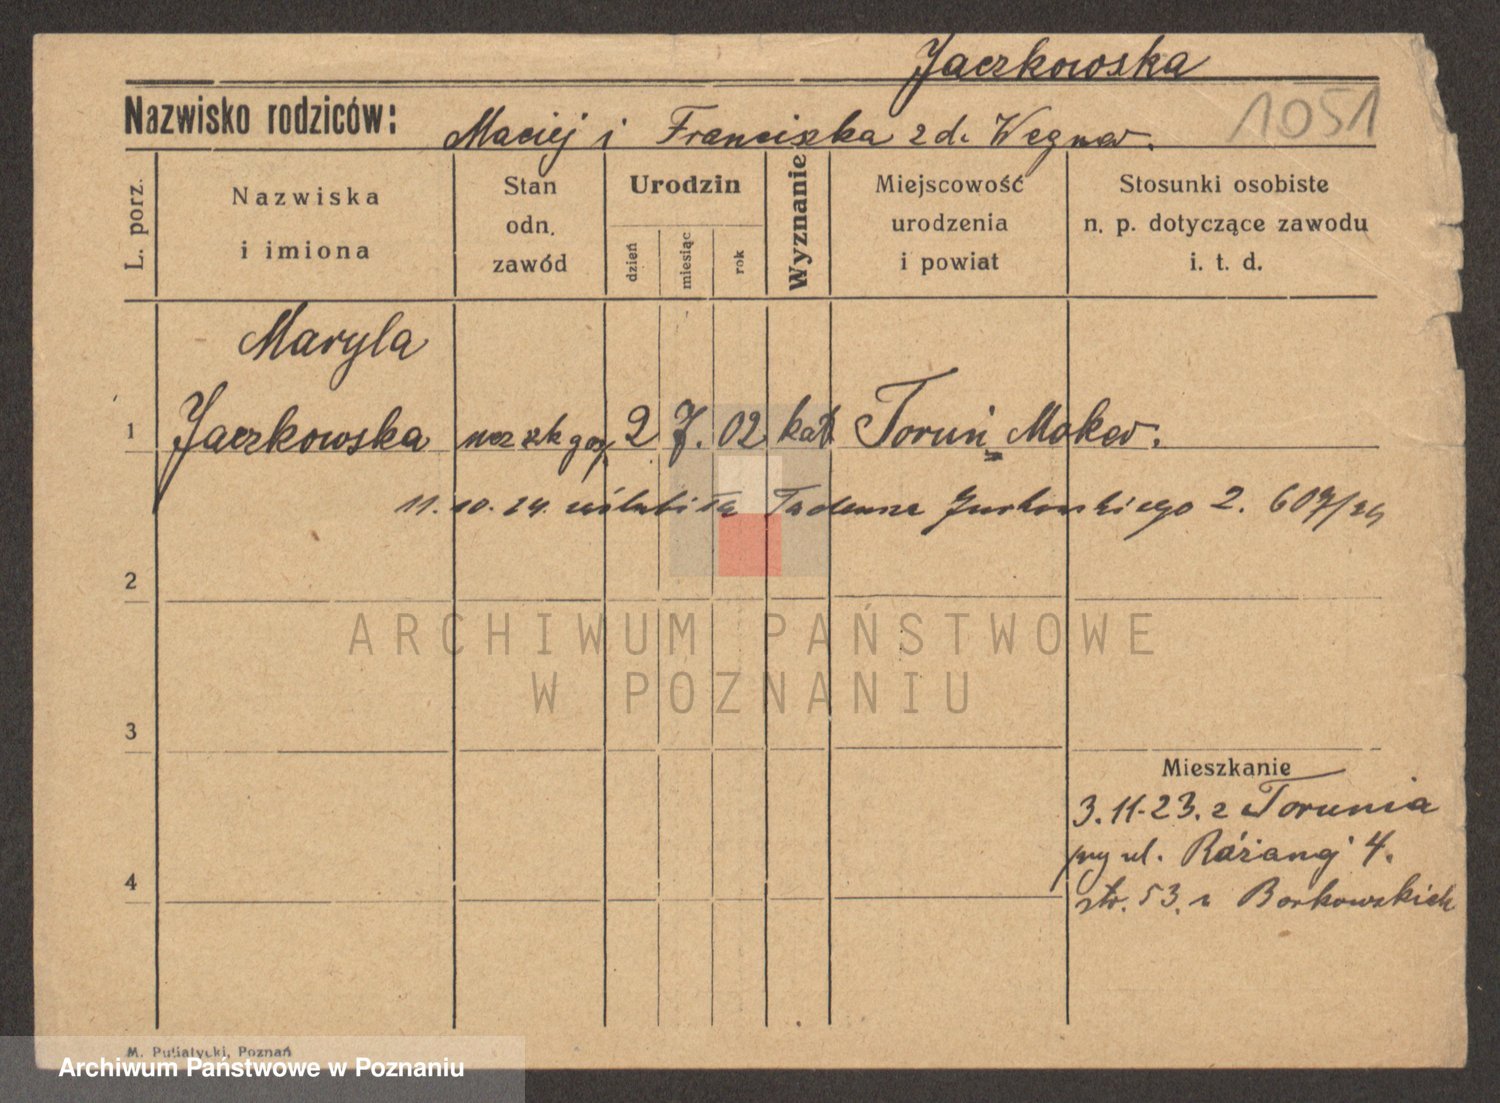 Jaczkowska
1051
Nazwisko rodziców: Maciej i Franciszka zd. Wegner.
L. porz.
Nazwiska
i imiona
Stan
odn.
zawód
Urodzin
dzień
miesiąc
rok
Wyznanie
Miejscowość
urodzenia
i powiat
Stosunki osobiste
n. p. dotyczące zawodu
i. t. d.
Maryla
1 Jaczkowska 2 7. 02 kat Toruń Moker.
11. 10. 24. zaślubiła Tadeusza 2. 607/24
2
ARCHIWUM PAŃSTWOWE
W POZNANIU
3
Mieszkanie
3. 11. 23. z Torunia
przy ul. Różanej 4.
4
53. u Borkowskich
M. Putiatycki, Poznań
Archiwum Państwowe w Poznaniu